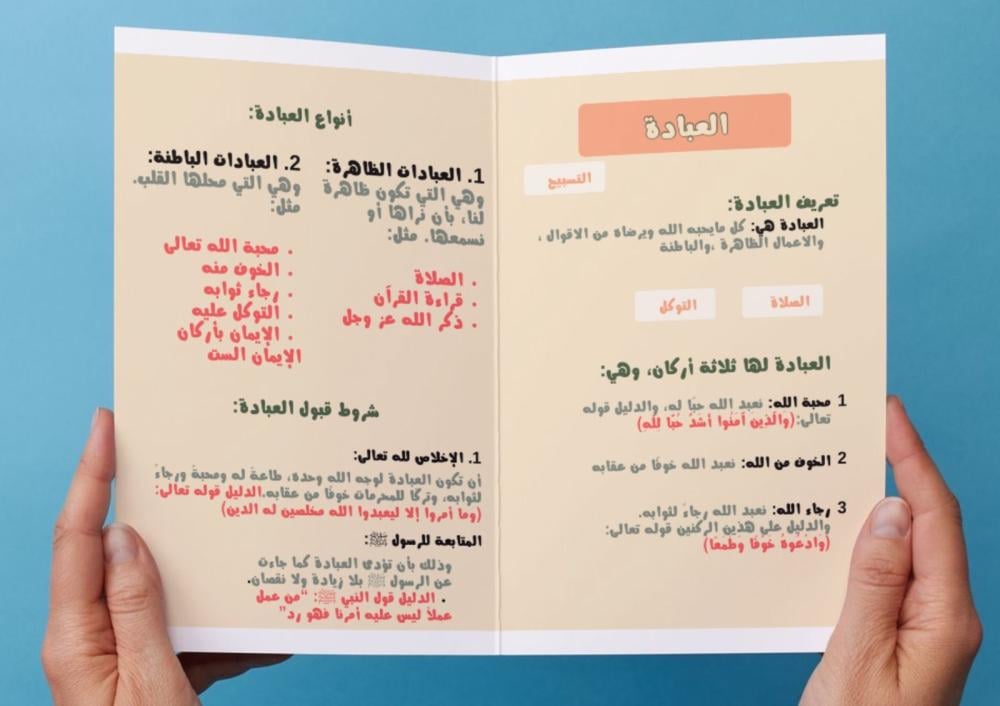 العبادة
التسبيح
تعريف العبادة:
العبادة هي: كل مايحبه الله ويرضاة من الاقوال ،
والاعمال الظاهرة ،والباطنة
الصلاة
التوكل
العبادة لها ثلاثة أركان، وهي:
1 محبة الله: نعبد الله حبًا له، والدليل قوله
تعالى:(والَّذين آمَنُوا أشَدُّ حُبًّا لِلَّهِ)
2 الخوف من الله: نعبد الله خوفًا من عقابه
3 رجاء الله: نعبد الله رجاءً لثوابه.
والدليل على هذين الركنين قوله تعالى:
(وَادْعُوهُ خَوفًا وَطَمَعًا)
أنواع العبادة:
1. العبادات الظاهرة:
وهي التي تكون ظاهرة
لنا، بأن نراها أو
نسمعها. مثل:
. الصلاة
. قراءة القرآن
. ذكر الله عز وجل
2. العبادات الباطنة:
وهي التي محلها القلب.
مثل:
. محبة الله تعالى
. الخوف منه
. رجاء ثوابه
. التوكل عليه
. الإيمان بأركان
الإيمان الست
شروط قبول العبادة:
1. الإخلاص لله تعالى:
أن تكون العبادة لوجه الله وحده، طاعةً له ومحبةً ورجاءً
لثوابه، وتركًا للمحرمات خوفًا من عقابه.الدليل قوله تعالى:
(وما أمروا إلا ليعبدوا الله مخلصين له الدين)
المتابعة للرسول ﷺ:
وذلك بأن تؤدى العبادة كما جاءت
عن الرسول ﷺ بلا زيادة ولا نقصان.
. الدليل قول النبي ﷺ: "من عمل
عملاً ليس عليه أمرنا فهو رد"